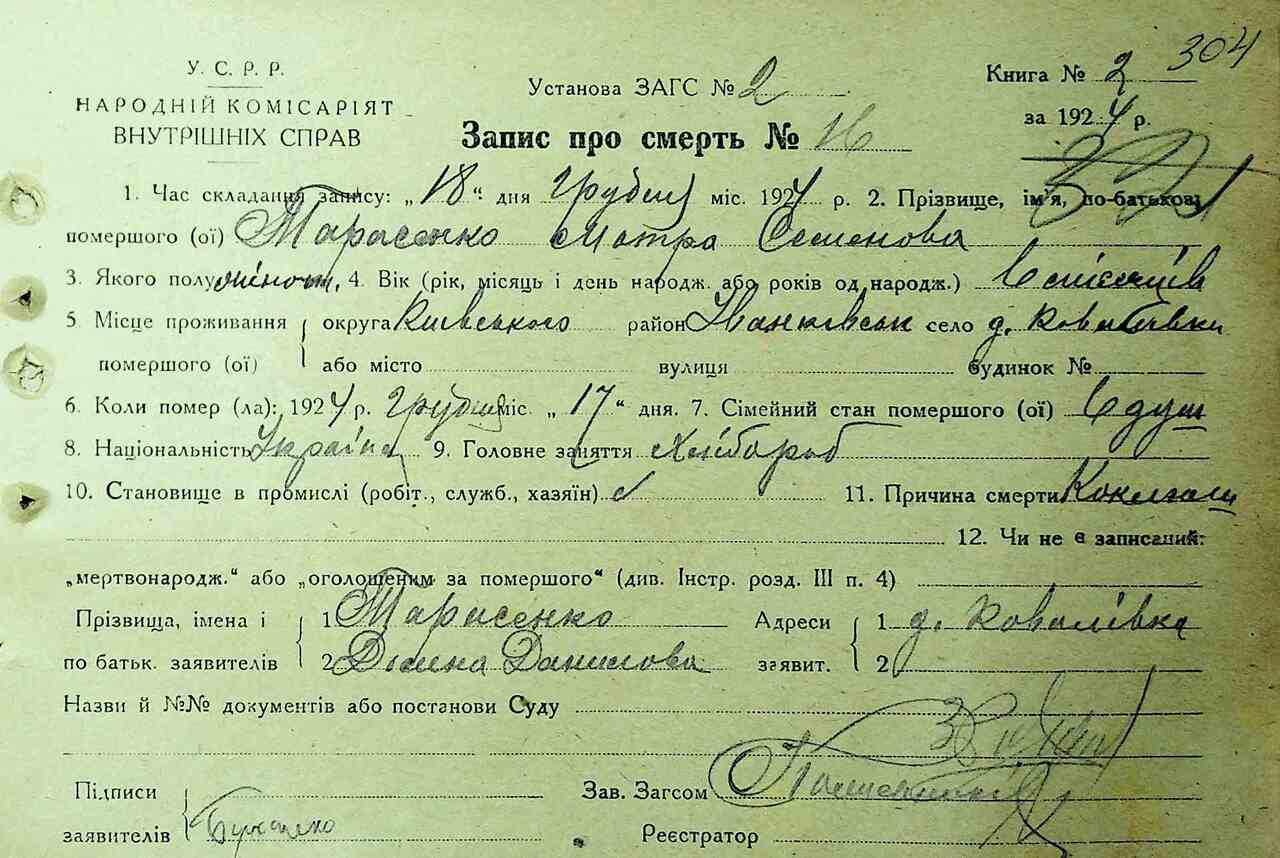 304
У. С. Р. Р.
НАРОДНІЙ КОМІСАРІЯТ
ВНУТРІШНІХ СПРАВ
Установа ЗАГС № 2
Книга № 2
за 1924 р.
Запис про смерть № 16
1. Час складання запису: „18“ дня Грудня міс. 1924 р. 2. Прізвище, ім'я, по-батькові
помершого (ої) Тарасенко Мотра Семенова
3. Якого полу жіноч. 4. Вік (рік, місяць і день народж. або років од народж.) 6 місяців
5 Місце проживання округа Київського район Іванківськ село д. Ковалівки
помершого (ої) або місто вулиця будинок №
6. Коли помер (ла): 1924 р. Грудня міс. „17“ дня. 7. Сімейний стан помершого (ої) 6 душ
8. Національність Україна 9. Головне заняття Хлібороб
10. Становище в промислі (робіт., служб., хазяїн) 11. Причина смерти Коклюш
12. Чи не є записаний:
„мертвонародж.“ або „оголошеним за помершого“ (див. Інстр. розд. III п. 4)
Прізвища, імена і 1 Тарасенко Адреси 1 д. Ковалівка
по батьк. заявителів 2 Данилова заявит. 2
Назви й №№ документів або постанови Суду
Підписи
Зав. Загсом
заявителів
Реєстратор